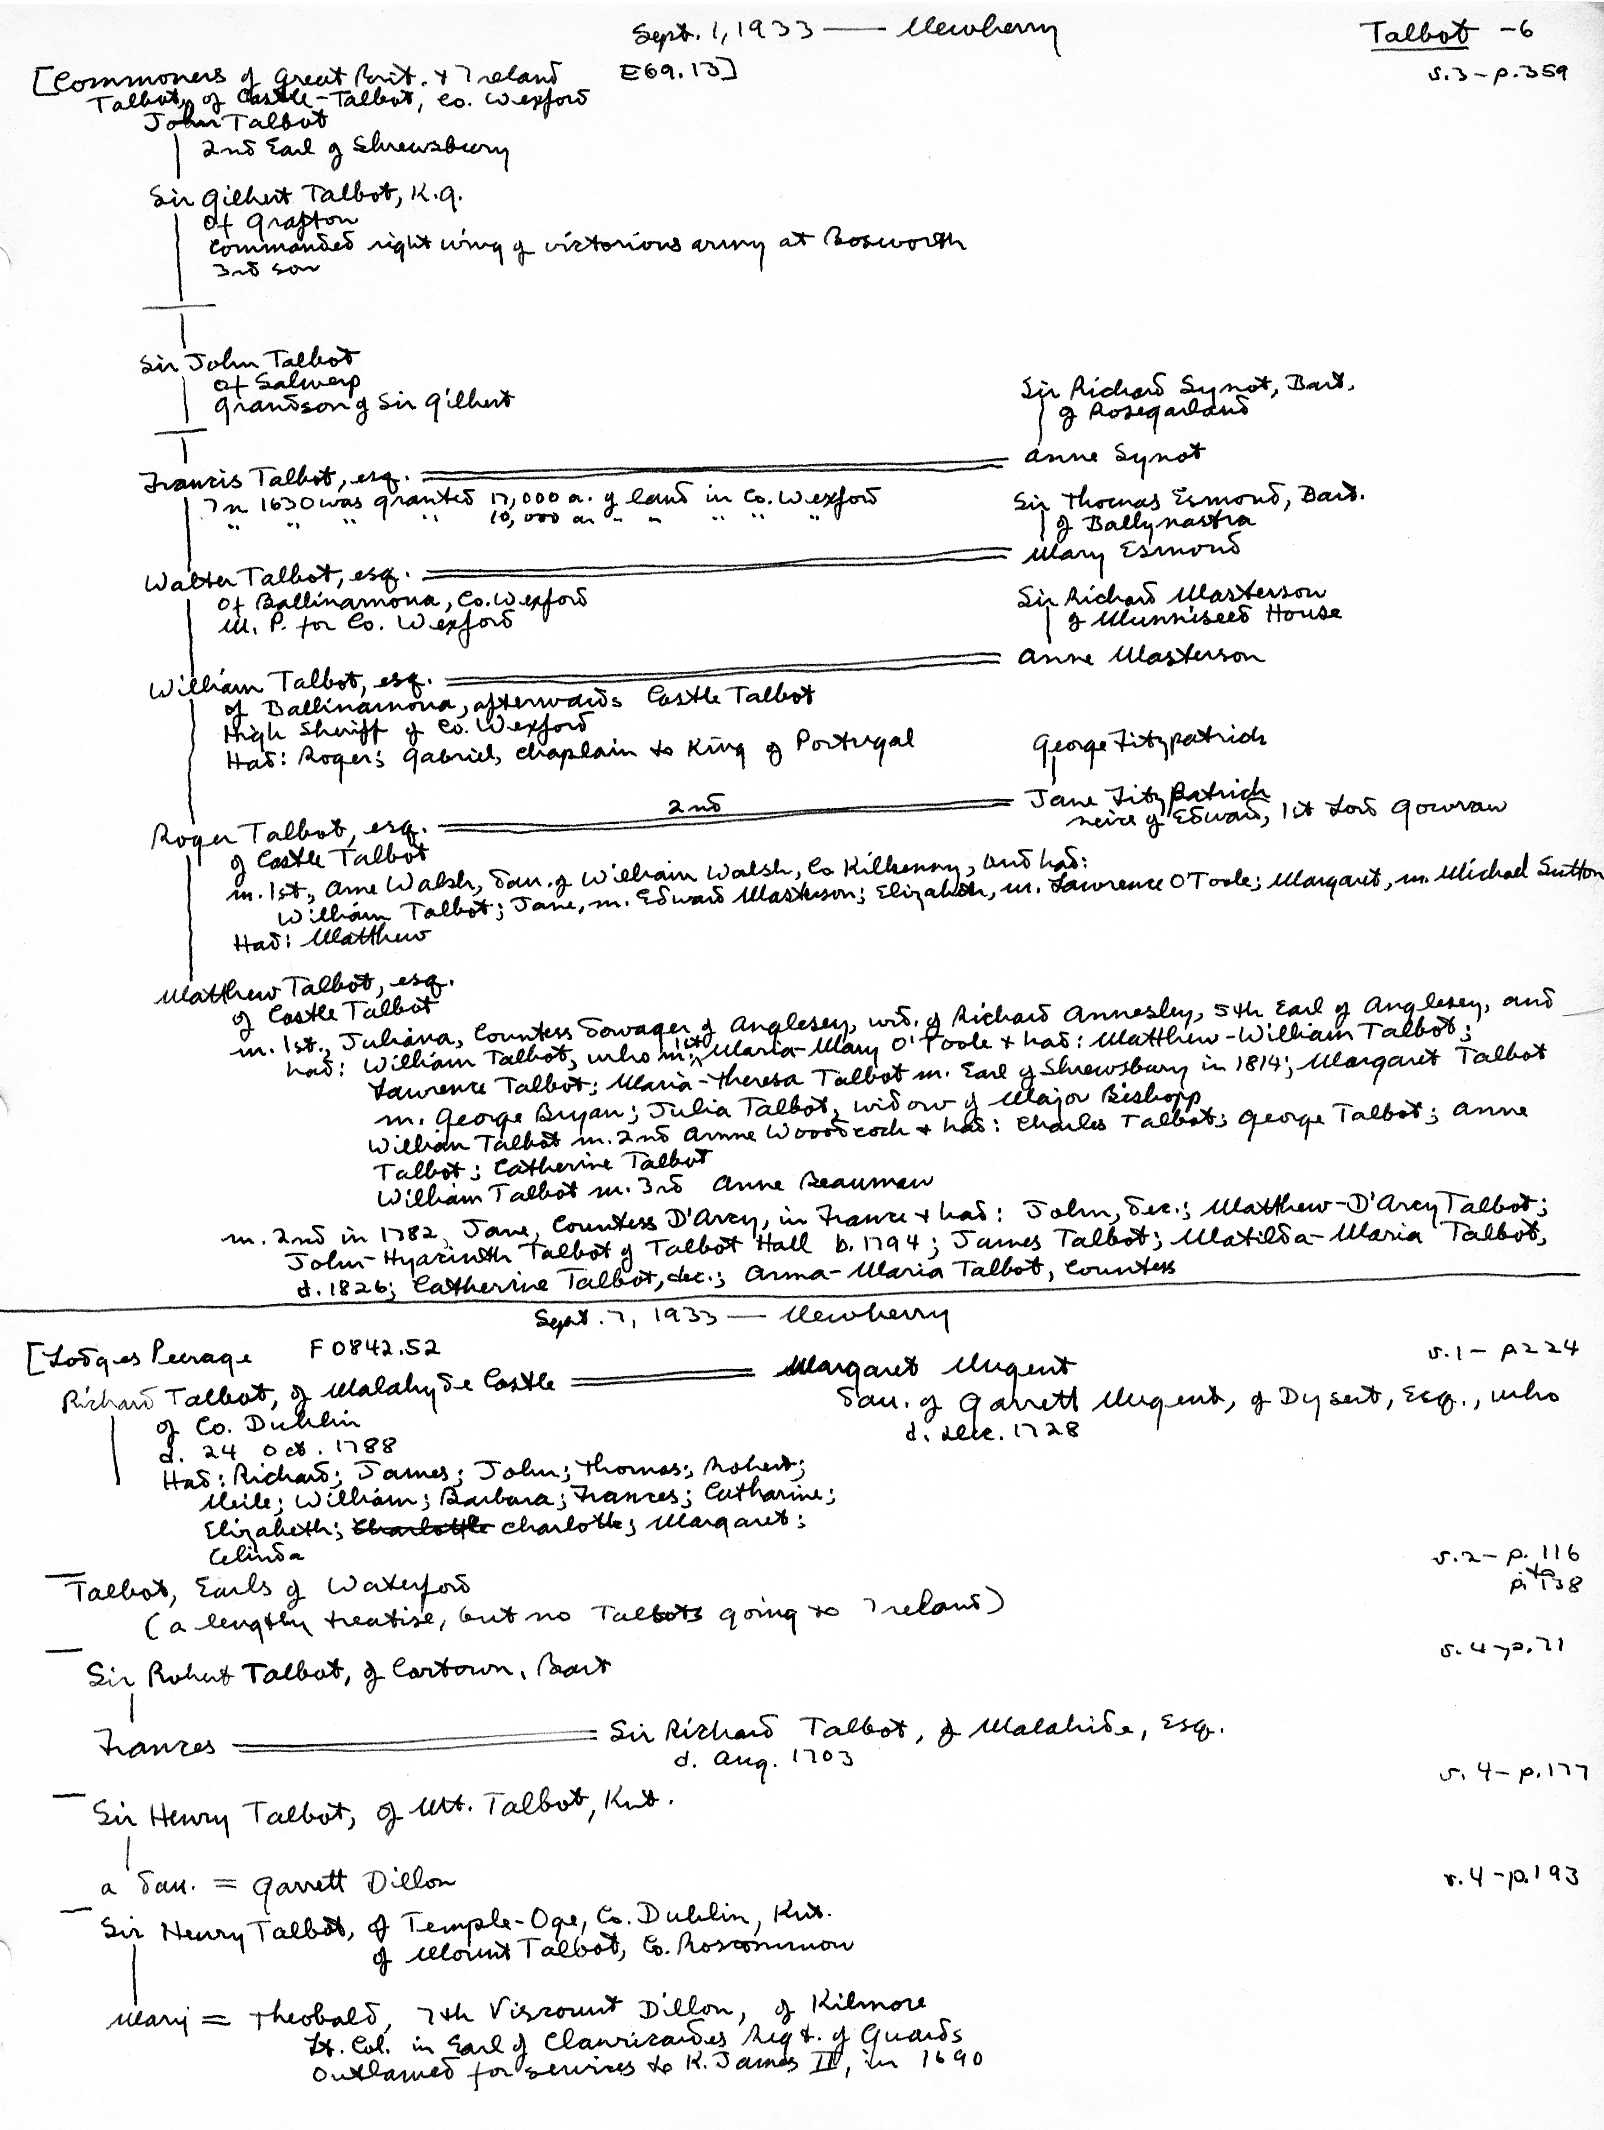 Sept. 1, 1933 — Newberry
Talbot -6
[Commoners of Great Brit. & Ireland E69.13]
v.3-p.359
Talbot, of Castle-Talbot, Co. Wexford
John Talbot
2nd Earl of Shrewsbury
Sir Gilbert Talbot, K.G.
of Grafton
Commanded right wing of victorious army at Bosworth
3rd son
Sir John Talbot
of Salwerp
Grandson of Sir Gilbert
Sir Richard Synot, Bart.
of Rosegarland
Francis Talbot, esq. = Anne Synot
In 1630 was granted 17,000 a. of land in Co. Wexford
" " " " 10,000 a. " " " " "
Sir Thomas Esmond, Bart.
of Ballynastra
Walter Talbot, esq. = Mary Esmond
of Ballinamona, Co. Wexford
M. P. for Co. Wexford
Sir Richard Masterson
of Munniseed House
William Talbot, esq. = Anne Masterson
of Ballinamona, afterwards Castle Talbot
High Sheriff of Co. Wexford
Had: Roger; Gabriel, Chaplain to King of Portugal
George Fitzpatrick
Roger Talbot, esq. = 2nd Jane Fitzpatrick
neice of Edward, 1st Lord Gowran
of Castle Talbot
m. 1st., Anne Walsh, dau. of William Walsh, Co Kilkenny, and had:
William Talbot; Jane, m. Edward Masterson; Elizabeth, m. Lawrence O'Toole; Margaret, m. Michael Sutton
Had: Matthew
Matthew Talbot, esq.
of Castle Talbot
m. 1st., Juliana, Countess Dowager of Anglesey, wid. of Richard Annesley, 5th Earl of Anglesey, and
had: William Talbot, who m. 1st, Maria-Mary O'Toole & had: Matthew-William Talbot;
Lawrence Talbot; Maria-Theresa Talbot m. Earl of Shrewsbury in 1814; Margaret Talbot
m. George Bryan; Julia Talbot, widow of Major Bishopp
William Talbot m. 2nd Anne Wooodcock & had: Charles Talbot; George Talbot; Anne
Talbot; Catherine Talbot
William Talbot m. 3rd Anne Beauman
m. 2nd in 1782, Jane, Countess D'Arcy, in France & had: John, dec.; Matthew-D'Arcy Talbot;
John-Hyacinth Talbot of Talbot Hall b. 1794; James Talbot; Matilda-Maria Talbot,
d. 1826; Catherine Talbot, dec.; Anna-Maria Talbot, Countess
Sept. 7, 1933 — Newberry
[Lodges Peerage F0842.52
v.1- p224
Richard Talbot, of Malahyde Castle = Margaret Nugent
of Co. Dublin
dau. of Garrett Nugent, of Dysert, Esq., who
d. Dec. 1728
d. 24 Oct. 1788
Had: Richard; James; John; Thomas; Robert;
Neile; William; Barbara; Frances; Catharine;
Elizabeth; Charlottle Charlotte; Margaret;
Celinda
Talbot, Earls of Waterford
v.2- p. 116
to
p. 138
(a lengthy treatise, but no Talbots going to Ireland)
Sir Robert Talbot, of Cartown, Bart
v. 4-p.71
Frances = Sir Richard Talbot, of Malahide, Esq.
d. Aug. 1703
Sir Henry Talbot, of Mt. Talbot, Knt.
v. 4-p.177
a dau. = Garrett Dillon
Sir Henry Talbot, of Temple-Oge, Co. Dublin, Knt.
v.4-p.193
of Mount Talbot, Co. Roscommon
Mary = Theobald, 7th Viscount Dillon, of Kilmore
Lt. Col. in Earl of Clanricardes Regt. of Guards
Outlawed for services to K. James II, in 1690